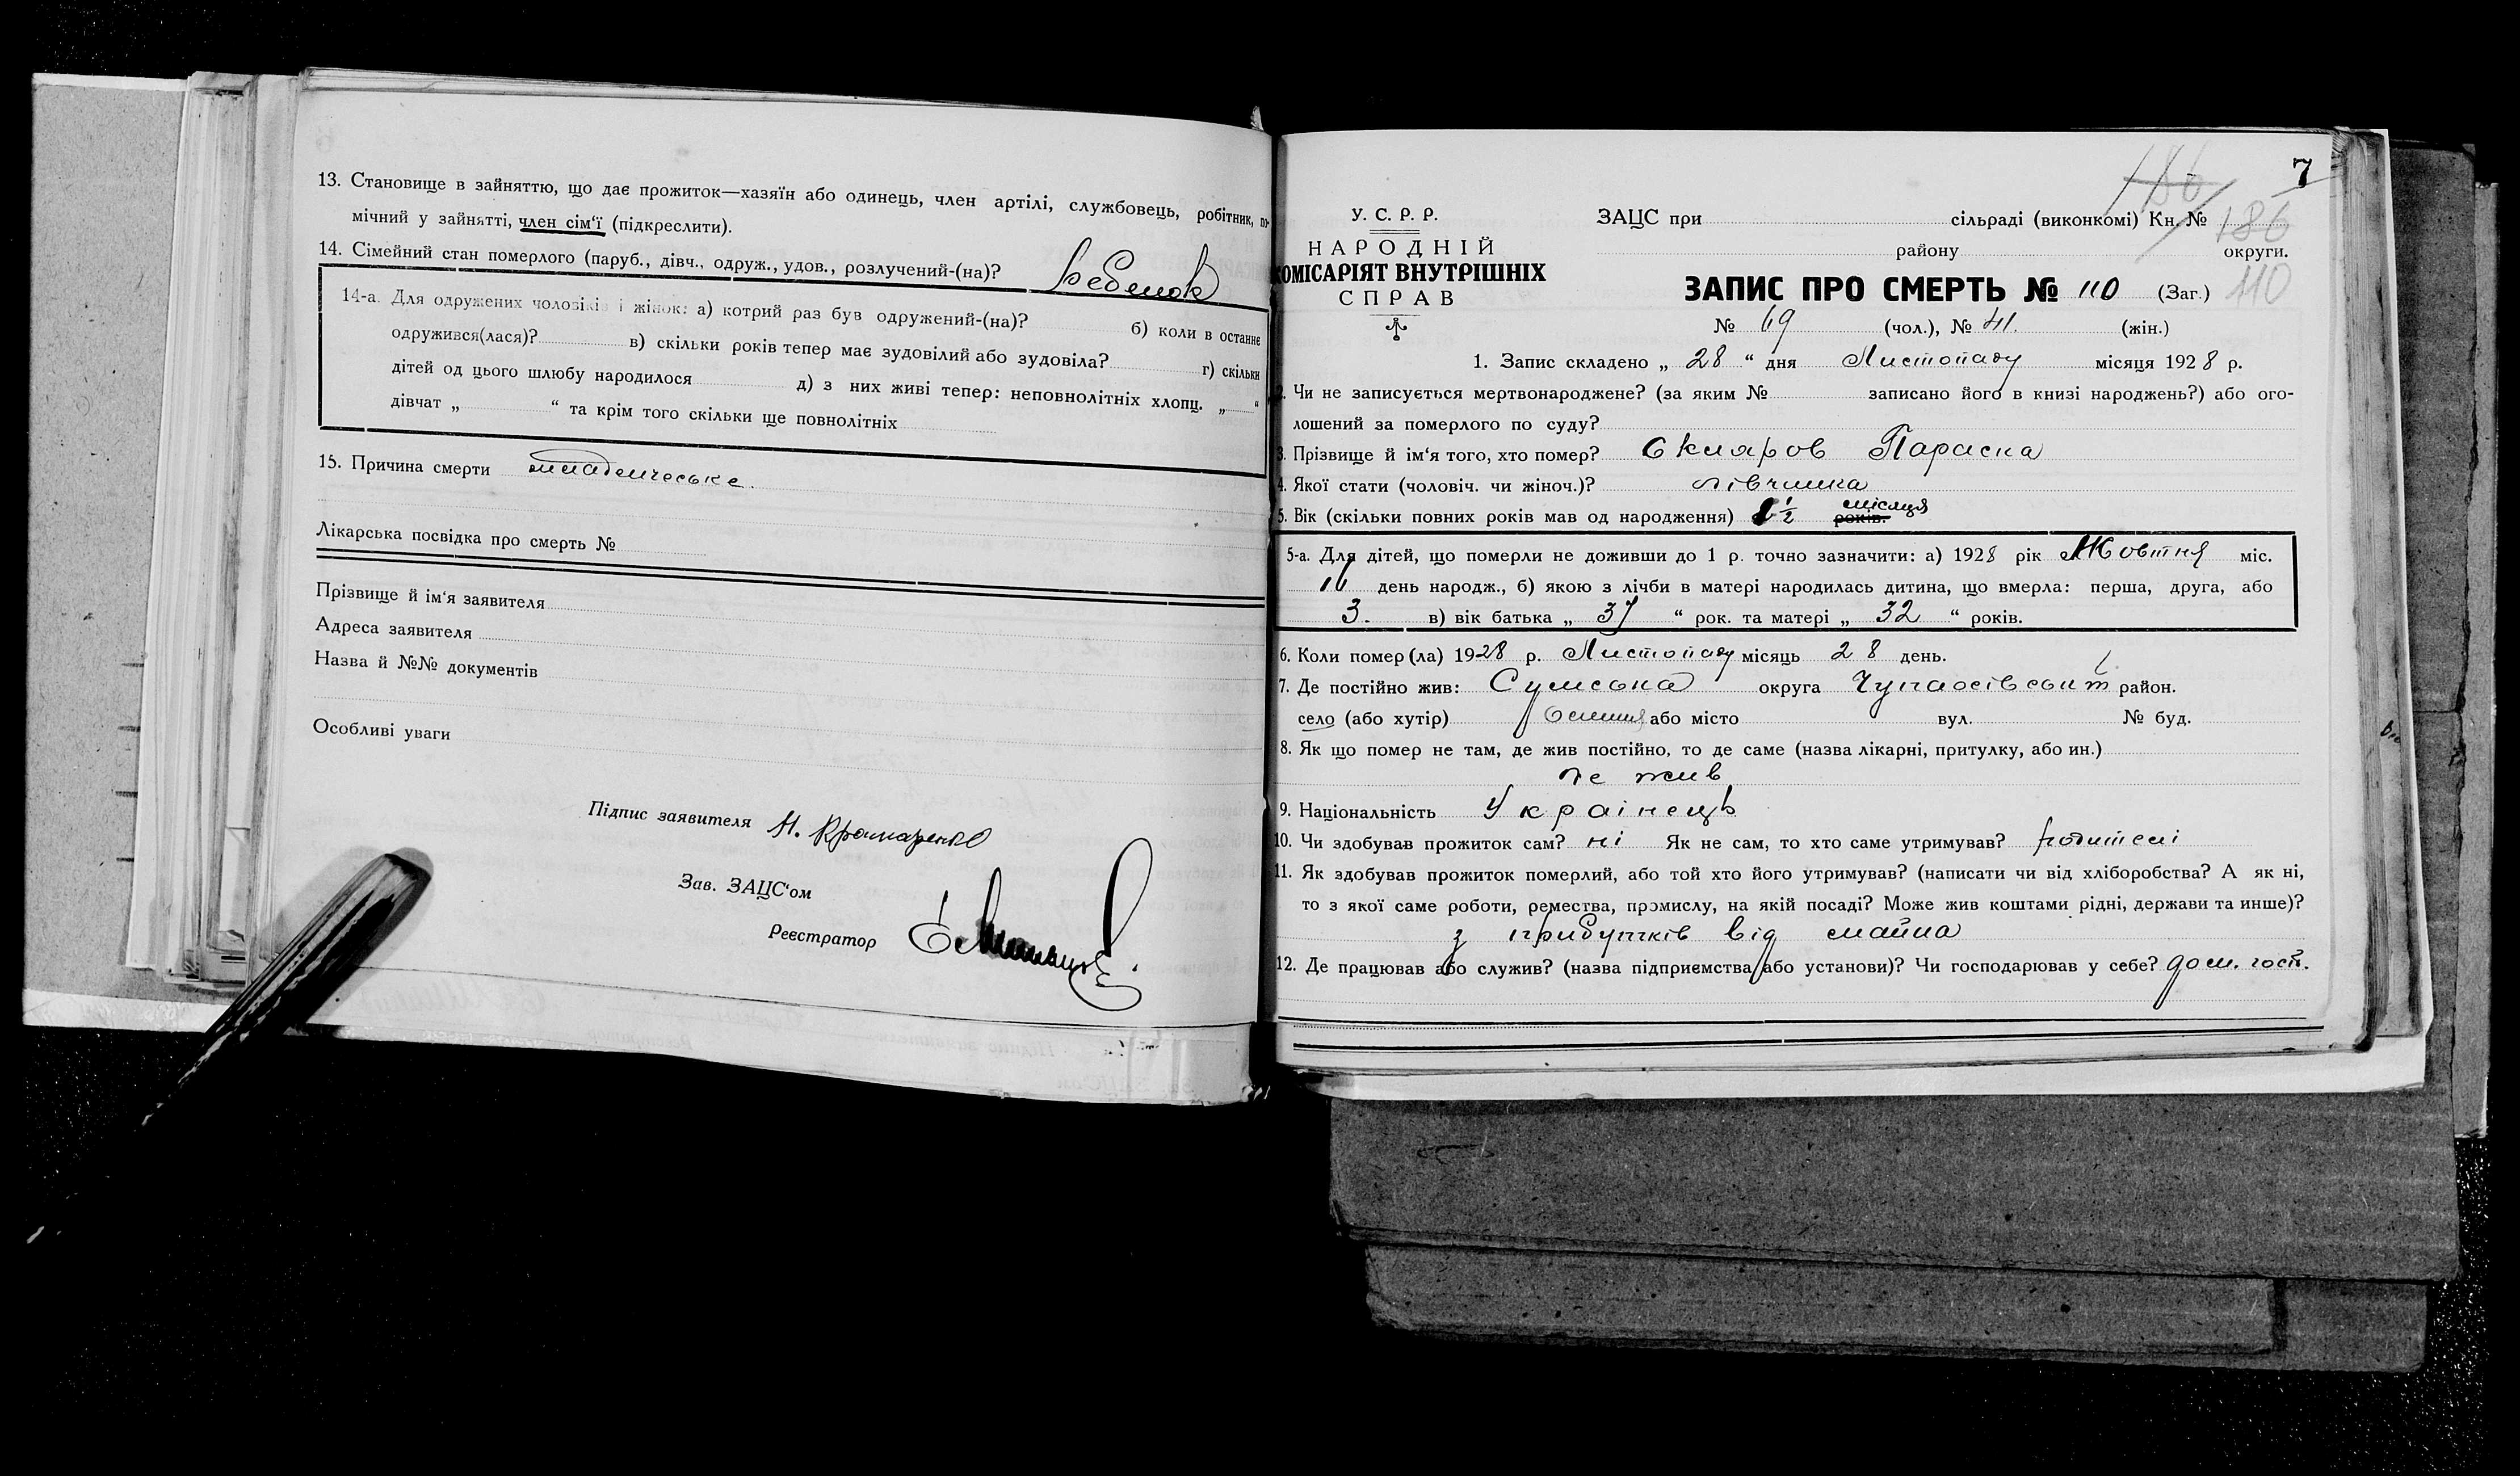 13. Становище в зайняттю, що дає прожиток—хазяїн або одинець, член артілі, службовець, робітник, по-
мічний у зайнятті, член сім'ї (підкреслити).
14. Сімейний стан померлого (паруб., дівч., одруж., удов., розлучений-(на)? Ребенок
14-а. Для одружених чоловіків і жінок: а) котрий раз був одружений-(на)? б) коли в останнє
одружився(лася)? в) скільки років тепер має зудовілий або зудовіла? г) скільки
дітей од цього шлюбу народилося д) з них живі тепер: неповнолітніх хлопц. „ “
дівчат „ “ та крім того скільки ще повнолітніх
15. Причина смерти младенческе.
Лікарська посвідка про смерть №
Прізвище й ім'я заявителя
Адреса заявителя
Назва й №№ документів
Особливі уваги
Підпис заявителя Н. Крамаренко
Зав. ЗАЦС'ом
Реєстратор
7
186
У. С. Р. Р.
НАРОДНІЙ
КОМІСАРІЯТ ВНУТРІШНІХ
СПРАВ
ЗАЦС при сільраді (виконкомі) Кн. № 186
району округи.
ЗАПИС ПРО СМЕРТЬ № 110 (Заг.) 110
№ 69 (чол.), № 41. (жін.)
1. Запис складено „ 28 “ дня Листопаду місяця 1928 р.
2. Чи не записується мертвонароджене? (за яким № записано його в книзі народжень?) або ого-
лошений за померлого по суду?
3. Прізвище й ім'я того, хто помер? Скляров Параска
4. Якої стати (чоловіч. чи жіноч.)? дівчинка
5. Вік (скільки повних років мав од народження) 1 1/2 років. місяця
5-а. Для дітей, що померли не доживши до 1 р. точно зазначити: а) 1928 рік Жовтня міс.
16 день народж., б) якою з лічби в матері народилась дитина, що вмерла: перша, друга, або
3. в) вік батька „ 37 “ рок. та матері „ 32 “ років.
6. Коли помер(ла) 1928 р. Листопаду місяць 28 день.
7. Де постійно жив: Сумська округа район.
село (або хутір) або місто вул. № буд.
8. Як що помер не там, де жив постійно, то де саме (назва лікарні, притулку, або ин.)
де жив
9. Національність Українець
10. Чи здобував прожиток сам? ні Як не сам, то хто саме утримував? родителі
11. Як здобував прожиток померлий, або той хто його утримував? (написати чи від хліборобства? А як ні,
то з якої саме роботи, ремества, промислу, на якій посаді? Може жив коштами рідні, держави та инше)?
з прибутків від майна
12. Де працював або служив? (назва підприємства або установи)? Чи господарював у себе? дом. госп.